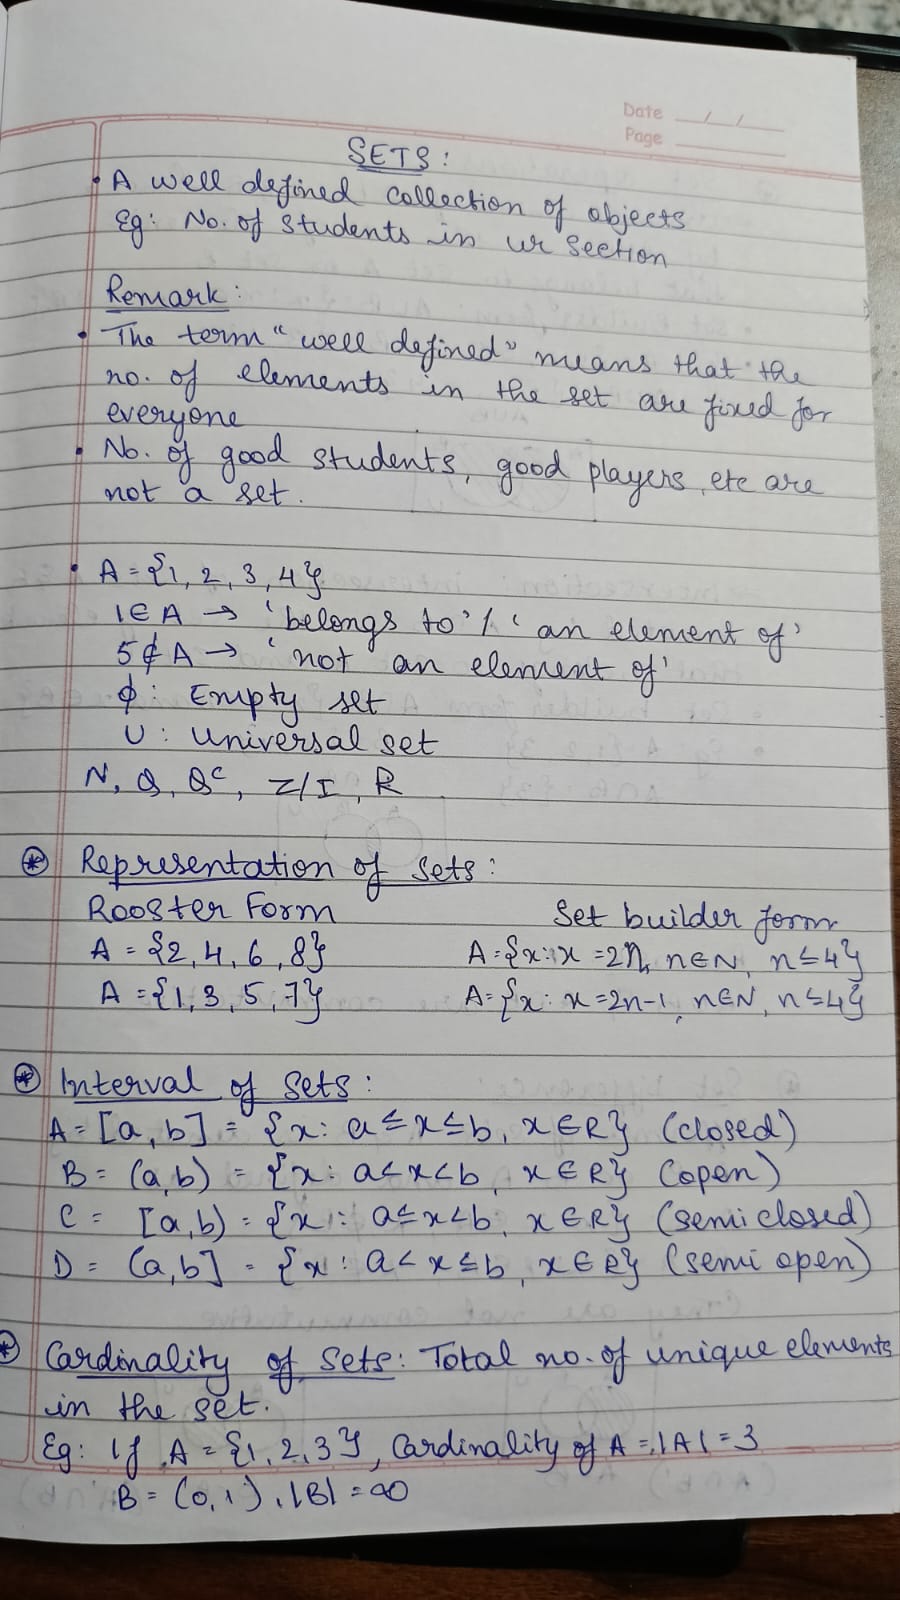 Date __/__/__
Page ______
SETS:
• A well defined collection of objects
Eg: No. of students in ur section
Remark:
• The term "well defined" means that the
no. of elements in the set are fixed for
everyone
• No. of good students, good players, etc are
not a set.
• A = {1, 2, 3, 4}
1 ∈ A → 'belongs to' / 'an element of'
5 ∉ A → 'not an element of'
ϕ : Empty set
U : Universal set
N, Q, Qᶜ, Z/I, R
⊛ Representation of Sets:
Rooster Form Set builder form
A = {2, 4, 6, 8} A = {x: x = 2n, n∈N, n≤4}
A = {1, 3, 5, 7} A = {x: x = 2n-1, n∈N, n≤4}
⊛ Interval of Sets:
A = [a, b] = {x: a ≤ x ≤ b, x ∈ R} (closed)
B = (a, b) = {x: a < x < b, x ∈ R} (open)
C = [a, b) = {x: a ≤ x < b, x ∈ R} (semi closed)
D = (a, b] = {x: a < x ≤ b, x ∈ R} (semi open)
⊛ Cardinality of Sets: Total no. of unique elements
in the set.
Eg: If A = {1, 2, 3}, Cardinality of A = |A| = 3
B = (0, 1), |B| = ∞